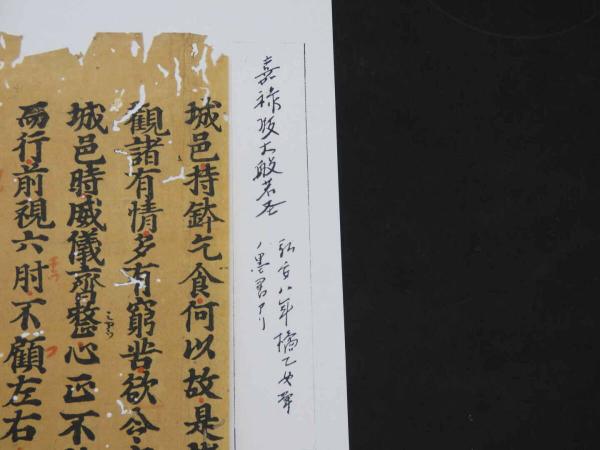 嘉禄版大般若経
弘安八年橘乙女筆
ノ墨書アリ
城邑持鉢乞食何以故是
觀諸有情多有窮苦欲令
城邑時威儀齊整心正不
而行前視六肘不顧左右